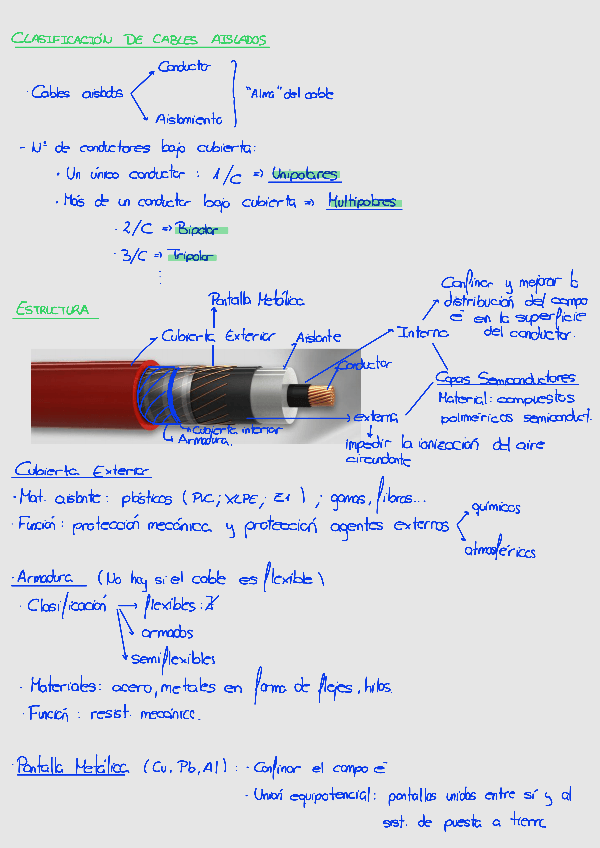 CLASIFICACIÓN DE CABLES AISLADOS
Conductor
· Cables aislados
"Alma" del cable
Aislamiento
- Nº de conductores bajo cubierta:
· Un único conductor : 1/C => Unipolares
· Más de un conductor bajo cubierta => Multipolares
· 2/C => Bipolar
· 3/C => Tripolar
Confinar y mejorar la
distribución del campo
e⁻ en la superficie
del conductor.
Pantalla Metálica
ESTRUCTURA
Cubierta Exterior
Aislante
Interna
Conductor
Capas Semiconductores
Material: compuestos
poliméricos semiconduct.
externa
Cubierta interior
Armadura.
impedir la ionización del aire
circundante
Cubierta Exterior
· Mat. aislante: plásticos (PVC; XLPE; Z1) ; gomas, fibras...
· Función: protección mecánica y protección agentes externos
químicos
atmosféricos
· Armadura (No hay si el cable es flexible)
· Clasificación → flexibles:
armados
semiflexibles
· Materiales: acero, metales en forma de flejes, hilos.
· Función: resist. mecánica.
· Pantalla Metálica (Cu, Pb, Al) : · Confinar el campo e⁻
· Unión equipotencial: pantallas unidas entre sí y al
sist. de puesta a tierra